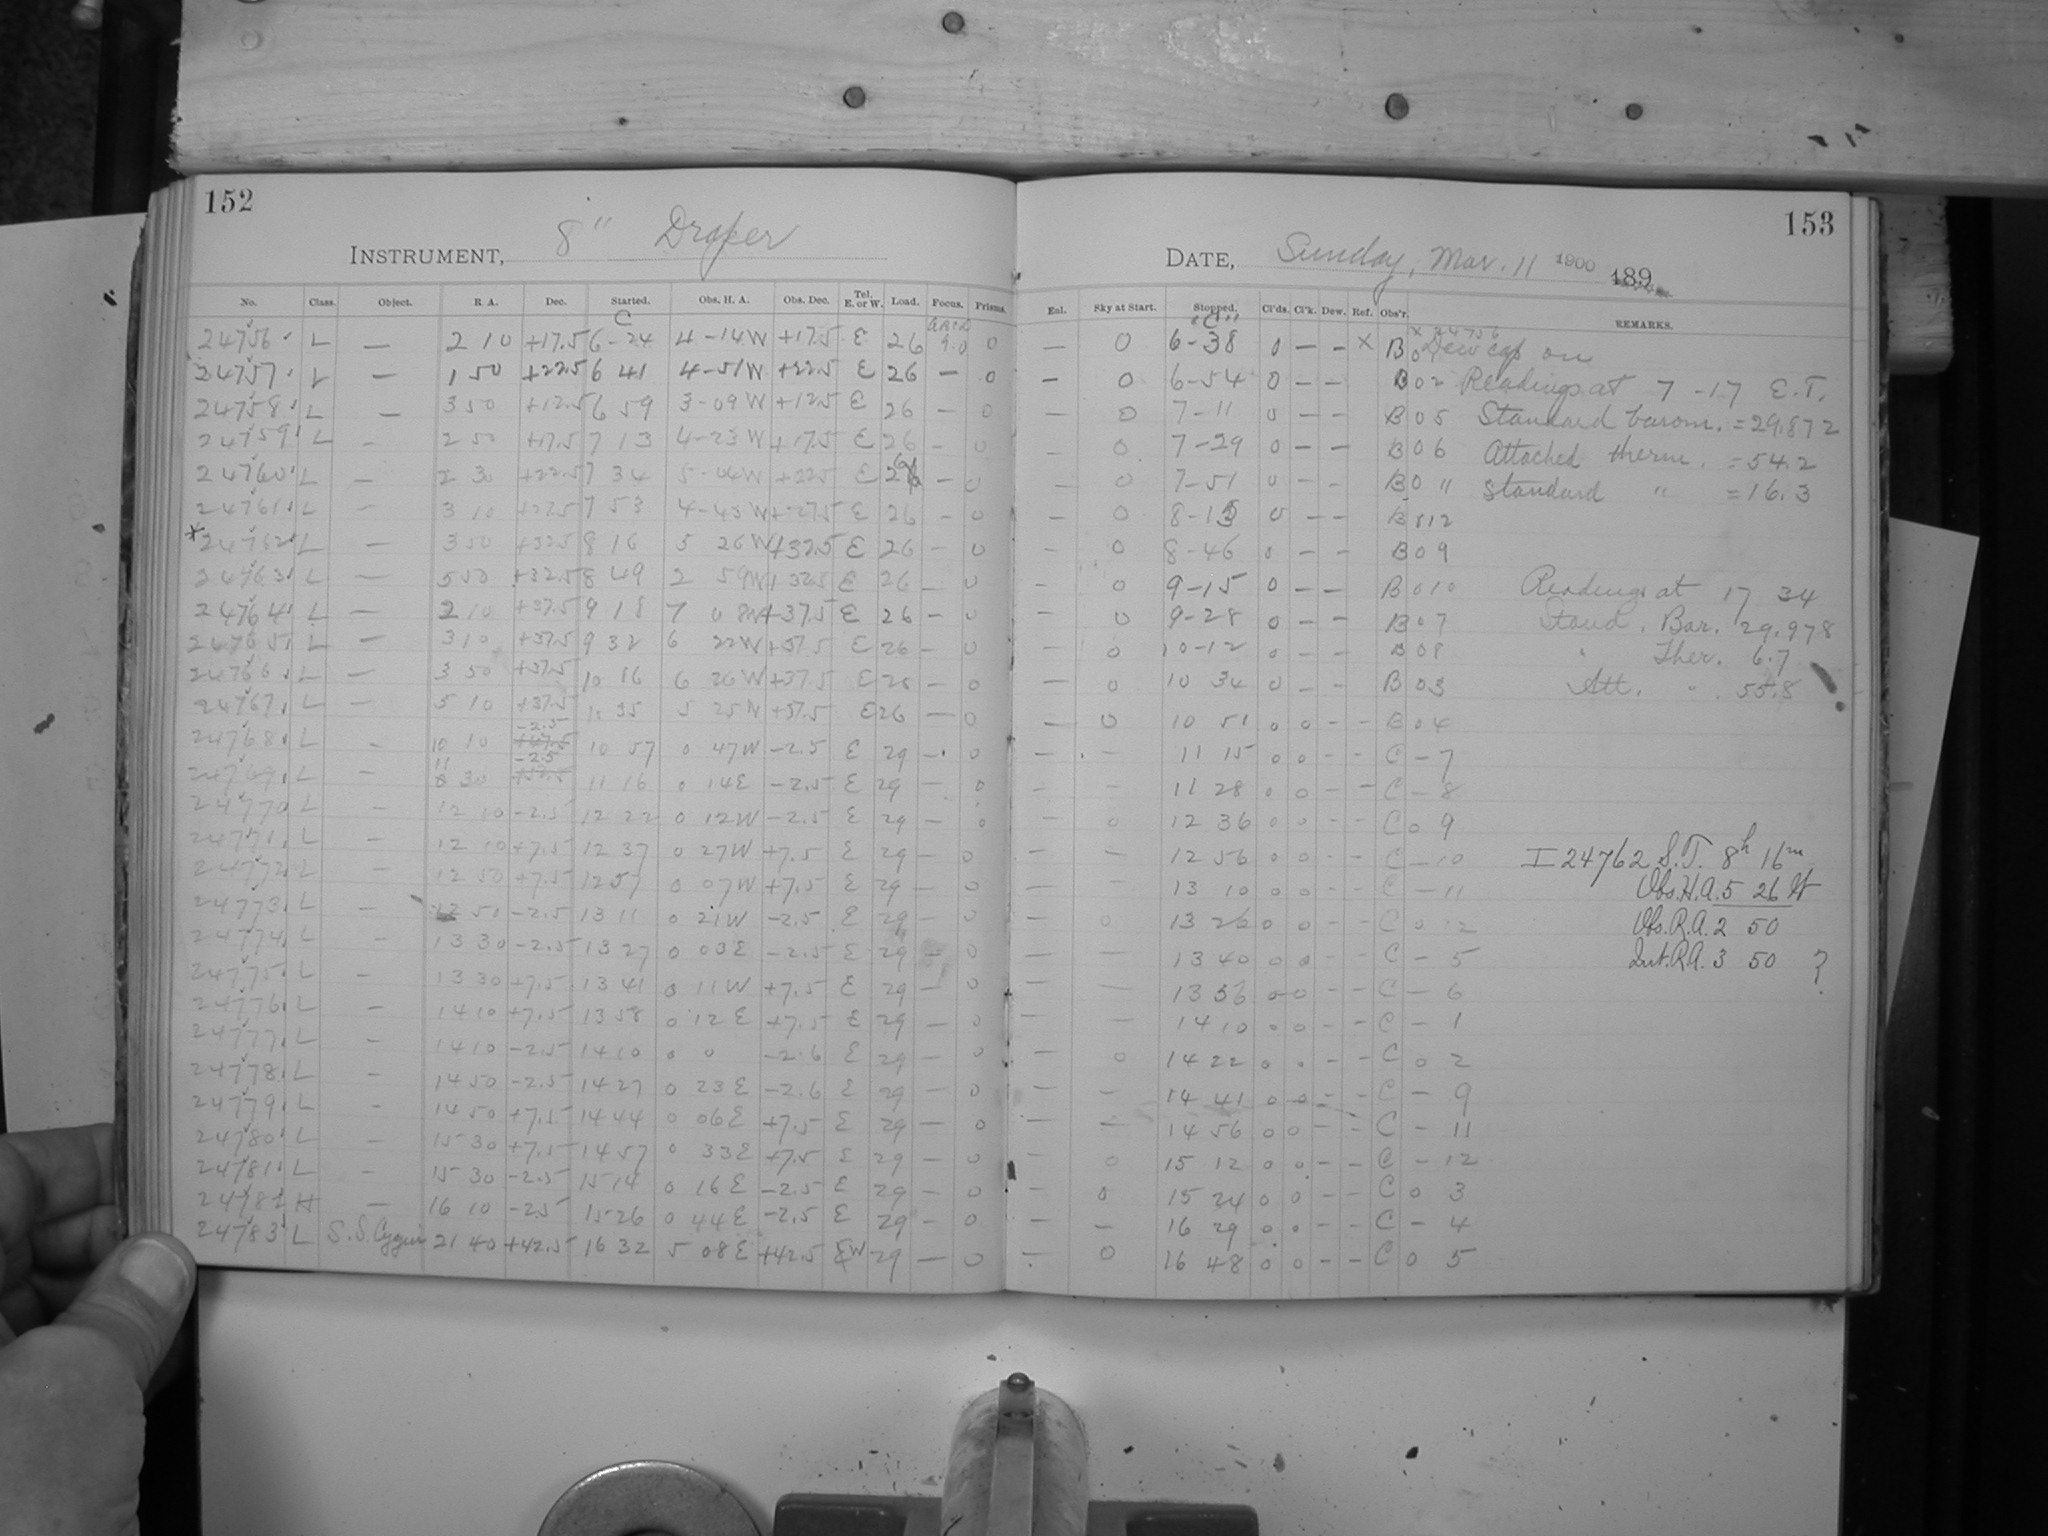 152
INSTRUMENT, 8" Draper
No. Class. Object. R. A. Dec. Started. Obs. H. A. Obs. Dec. Tel. E. or W. Load. Focus. Prisms.
C
24756 L — 2 10 +17.5 6-24 4-14W +17.5 E 26 9.0 0
24757 L — 1 50 +22.5 6 41 4-51W +22.5 E 26 — 0
24758 L — 3 50 +12.5 6 59 3-09W +12.5 E 26 — 0
24759 L — 2 50 +17.5 7 13 4-23W +17.5 E 26 — 0
24760 L — 2 30 +22.5 7 34 5-04W +22.5 E 26 — 0
24761 L — 3 10 +27.5 7 53 4-43W +27.5 E 26 — 0
*24762 L — 3 50 +32.5 8 16 5 26W +32.5 E 26 — 0
24763 L — 5 50 +32.5 8 49 2 59W +32.5 E 26 — 0
24764 L — 2 10 +37.5 9 18 7 08W +37.5 E 26 — 0
24765 L — 3 10 +37.5 9 32 6 22W +37.5 E 26 — 0
24766 L — 3 50 +37.5 10 16 6 26W +37.5 E 26 — 0
24767 L — 5 10 +37.5 10 35 5 25W +37.5 E 26 — 0
24768 L — 10 10 -2.5 10 57 0 47W -2.5 E 29 — 0
24769 L — 11 30 -2.5 11 16 0 14E -2.5 E 29 — 0
24770 L — 12 10 -2.5 12 22 0 12W -2.5 E 29 — 0
24771 L — 12 10 +7.5 12 37 0 27W +7.5 E 29 — 0
24772 L — 12 50 +7.5 12 57 0 07W +7.5 E 29 — 0
24773 L — 12 50 -2.5 13 11 0 21W -2.5 E 29 — 0
24774 L — 13 30 -2.5 13 27 0 03E -2.5 E 29 — 0
24775 L — 13 30 +7.5 13 41 0 11W +7.5 E 29 — 0
24776 L — 14 10 +7.5 13 58 0 12E +7.5 E 29 — 0
24777 L — 14 10 -2.5 14 10 0 0 -2.6 E 29 — 0
24778 L — 14 50 -2.5 14 27 0 23E -2.6 E 29 — 0
24779 L — 14 50 +7.5 14 44 0 06E +7.5 E 29 — 0
24780 L — 15 30 +7.5 14 57 0 33E +7.5 E 29 — 0
24781 L — 15 30 -2.5 15 14 0 16E -2.5 E 29 — 0
24782 H — 16 10 -2.5 15 26 0 44E -2.5 E 29 — 0
24783 L S.S. Cygni 21 40 +42.5 16 32 5 08E +42.5 W 29 — 0
153
DATE, Sunday, Mar. 11 1900 189
Eul. Sky at Start. Stopped. Cl'ds. Cl'k. Dew. Ref. Obs'r. REMARKS.
"C" x 24756
— 0 6-38 0 — — x B 01 Dew cap on
— 0 6-54 0 — — B 02 Readings at 7-17 E.T.
— 0 7-11 0 — — B 05 Standard barom. = 29.872
— 0 7-29 0 — — B 06 Attached therm. = 54.2
— 0 7-51 0 — — B 0 11 Standard " = 16.3
— 0 8-13 0 — — B 012
— 0 8-46 0 — — B 09
— 0 9-15 0 — — B 010 Readings at 17 34
— 0 9-28 0 — — B 07 Stand. Bar. 29.978
— 0 10-12 0 — — B 08 " Ther. 6.7
— 0 10 34 0 — — B 03 Att. " 55.8
— 0 10 51 0 0 — — B 04
— — 11 15 0 0 — — C — 7
— — 11 28 0 0 — — C — 8
— 0 12 36 0 0 — — C 0 9
— — 12 56 0 0 — — C — 10 I 24762 S.T. 8h 16m
— — 13 10 0 0 — — C — 11 Obs. H.A. 5 26 W
— 0 13 26 0 0 — — C 0 12 Obs. R.A. 2 50
— — 13 40 0 0 — — C — 5 Int. R.A. 3 50 ?
— — 13 56 0 0 — — C — 6
— — 14 10 0 0 — — C — 1
— 0 14 22 0 0 — — C 0 2
— — 14 41 0 0 — — C — 9
— — 14 56 0 0 — — C — 11
— 0 15 12 0 0 — — C — 12
— 0 15 24 0 0 — — C 0 3
— — 16 29 0 0 — — C — 4
— 0 16 48 0 0 — — C 0 5